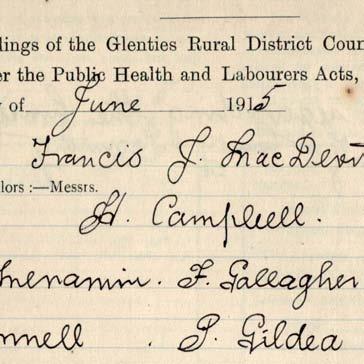 dings of the Glenties Rural District Coun
er the Public Health and Labourers Acts,
y of June 1915
Francis J. MacDevi
lors :—Messrs.
H. Campbell.
Menamin. F. Gallagher
nnell. P. Gildea